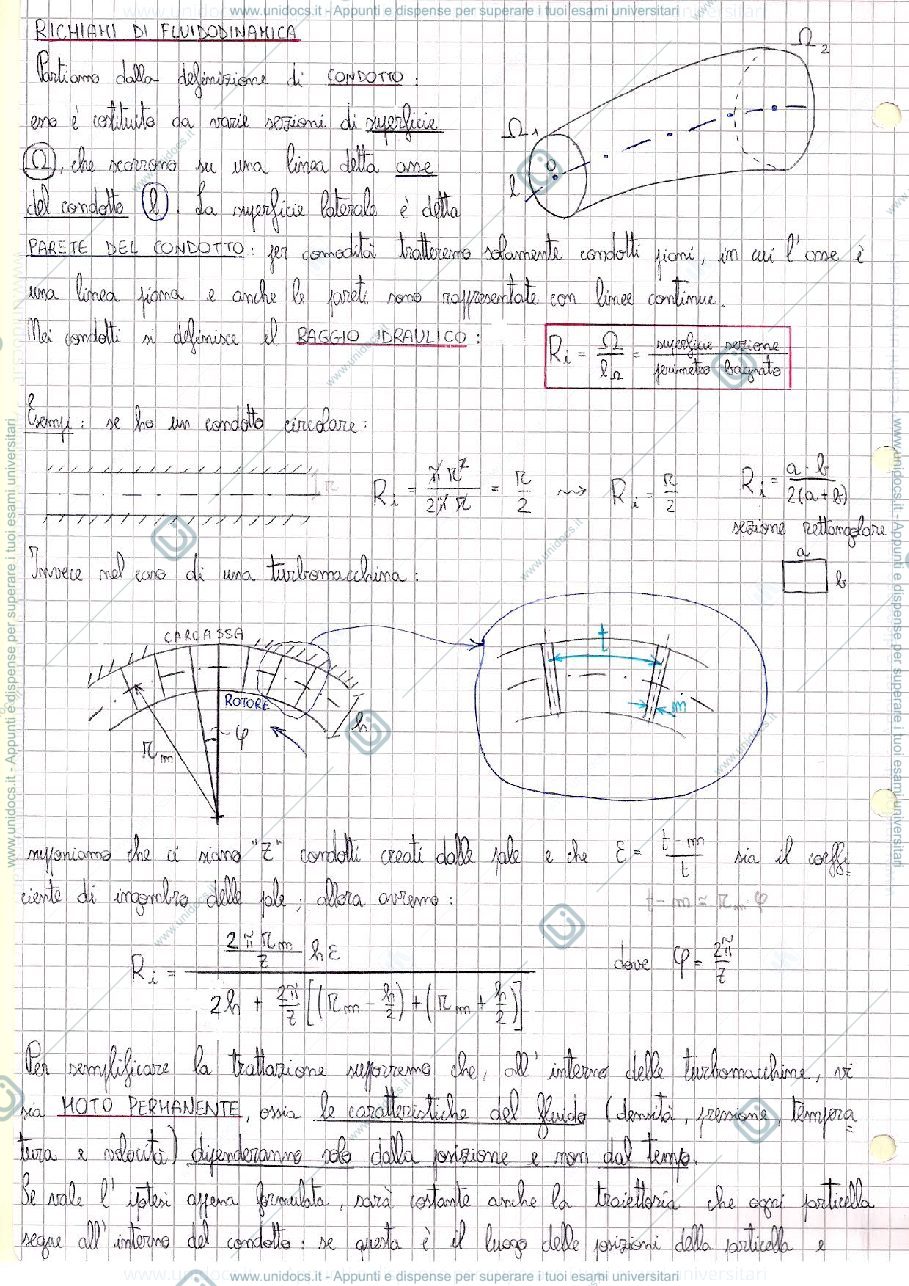 www.unidocs.it - Appunti e dispense per superare i tuoi esami universitari
RICHIAMI DI FLUIDODINAMICA
Partiamo dalla definizione di CONDOTTO:
esso è costituito da varie sezioni di superficie
Ω, che scorrono su una linea detta asse
del condotto l. La superficie laterale è detta
Ω1
Ω2
O
l
PARETE DEL CONDOTTO: per comodità tratteremo solamente condotti piani, in cui l'asse è
una linea piana e anche le pareti sono rappresentate con linee continue.
Nei condotti si definisce il RAGGIO IDRAULICO:
Ri = Ω/lΩ = superficie sezione/perimetro bagnato
Esempi: se ho un condotto circolare:
r
Ri = πr²/2πr = r/2 ⇝ Ri = r/2
Ri = a·b/2(a+b)
sezione rettangolare
a
b
Invece nel caso di una turbomacchina:
CARCASSA
ROTORE
h
φ
rm
t
m
supponiamo che ci siano "Z" condotti creati dalle pale e che ε = t-m/t sia il coeffi
ciente di ingombro delle pale; allora avremo:
t-m = rm·φ
Ri = (2πrm/Z) hε / 2h + 2π/Z [(rm - h/2) + (rm + h/2)]
dove φ = 2π/Z
Per semplificare la trattazione supporremo che, all'interno delle turbomacchine, vi
sia MOTO PERMANENTE, ossia le caratteristiche del fluido (densità, pressione, tempera
tura e velocità) dipenderanno solo dalla posizione e non dal tempo.
Se vale l'ipotesi appena formulata, sarà costante anche la traiettoria che ogni particella
segue all'interno del condotto: se questa è il luogo delle posizioni della particella e
www.unidocs.it - Appunti e dispense per superare i tuoi esami universitari